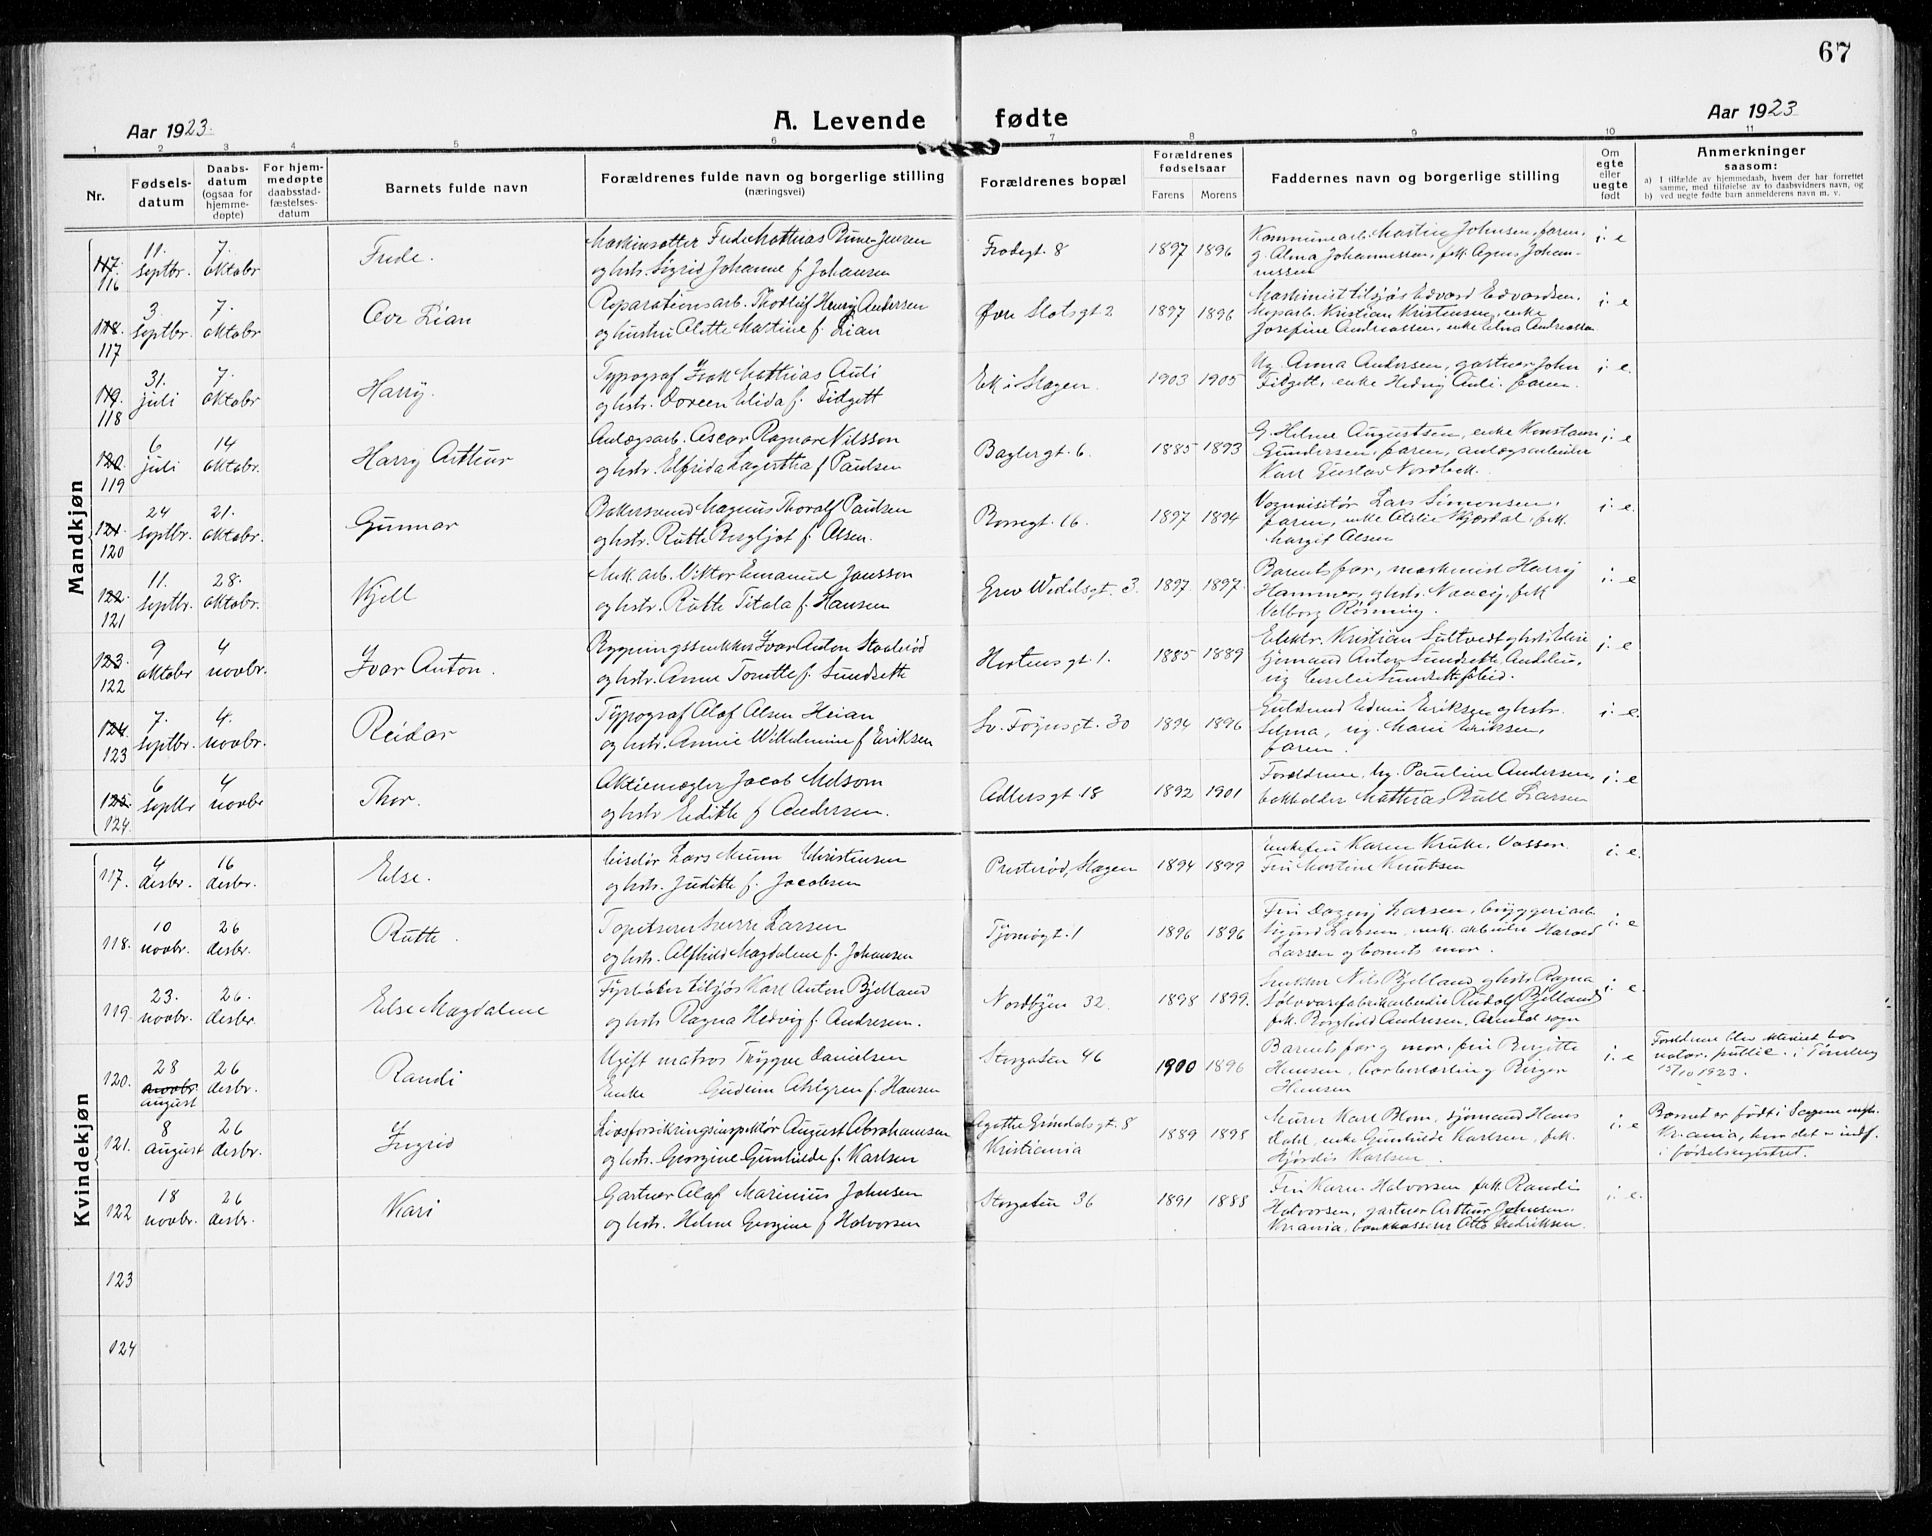 67
Aar 1923.
A. Levende fødte
Aar 1923
1 2 3 4 5 6 7 8 9 10 11
Nr.
Fødselsdatum
Daabsdatum (ogsaa for hjemmedøpte)
For hjemmedøpte daabsstadfæstelsesdatum
Barnets fulde navn
Forældrenes fulde navn og borgerlige stilling (næringsvei)
Forældrenes bopæl
Forældrenes fødselsaar
Farens Morens
Faddernes navn og borgerlige stilling
Om egte eller uegte født
Anmerkninger saasom:
a) I tilfælde av hjemmedaab, hvem der har forrettet samme, med tilføielse av to daabsvidners navn, og
b) ved uegte fødte barn anmelderens navn m. v.
Mandkjøn
117. 116 11. septbr. 7. oktober Frede.
Maskinsetter Frede Mathias Bune-Jensen
og hstr. Sigrid Johanne f. Johansen
Frodegt. 8 1897 1896
Kommunearb. Martin Johnsen, faren,
g. Alma Johannessen, frk. Agnes Johannessen
i. e
118. 117 3. septbr. 7. oktober Ove Lian
Reparationsarb. Thorleif Henry Andersen
og hustru Alette Martine f. Lian
Øvre Slotsgt 2 1897 1896
Maskinist tilsjøs Edvard Edvardsen,
Kristian Kristensen, enke
Josefine Andreassen, enke Elna Andreassen
i. e.
119. 118 31. juli 7. oktober Harry.
Typograf Isak Mathias Auli
og hstr. Doreen Elida f. Fidgett
Ek i Slagen. 1903 1905
Ug. Anna Andersen, gartner John
Fidgett, enke Hedvig Auli. faren.
i. e.
120. 119 6 juli 14 oktober. Harry Arthur
Anlægsarb. Oscar Ragnar Nilsson
og hstr. Elfrida Lagertha f. Paulsen
Baglergt. 6. 1885 1893
G. Helene Augustsen, enke Konstanse
Gundersen, faren, anlægsarbeider
Karl Gustav Nordbek.
i. e
121. 120 24 septbr. 21. oktober. Gunnar
Bakersvend Magnus Thoralf Paulsen
og hstr. Ruth Bergljot f. Olsen.
Borregt. 16. 1897 1894
Vognvisitør Lars Simonsen,
faren, enke Otelie Kjærdal, frk.
Margit Olsen
i. e.
122. 121 11. septbr. 28. oktober. Kjell
Mek. arb. Viktor Emanuel Jansson
og hstr. Ruth Titala f. Hansen
Grev Wedelsgt. 3. 1897 1897.
Barnets far, maskinist Harry
Hammer, og hstr. Nancy, frk
Valborg Rønning.
i. e
123 122 9 oktober 4 novbr. Ivar Anton.
Bygningssnekker Ivar Anton Staalerød
og hstr. Anne Tonette f. Sundsette
Hortensgt. 1. 1885 1889
Elektr. Kristian Sultvedt og hstr. Elise
sjømand Anton Sundsette,
i. e
124. 123 7. septbr. 4. novbr. Reidar
Typograf Olaf Olsen Heian
og hstr. Annie Wilhelmine f Eriksen
Sv. Føynsgt. 30 1894 1896
Guldsmed Edvin Eriksen og hstr.
Selma, ug. Marie Eriksen,
faren.
i. e.
125. 124. 6 septbr 4 novbr Thor.
Aktiemægler Jacob Melsom
og hstr Edith f Andersen.
Adlersgt 18 1892 1901
Forældrene, ug. Pauline Andersen,
bokholder Mathias Bull Larsen
i. e
Kvindekjøn
117. 4 desbr. 16 desbr. Else.
Visitør Lars Munn Christensen
og hstr. Judith f. Jacobsen
Presterød, Slagen 1894 1899
Enkefru Karen Kruke, Vassen
Fru Martine Knutsen
i. e.
118. 10 novbr. 26 desbr. Ruth.
Tapetserer Sverre Larsen
og hstr. Alfhild Magdalene f. Johansen
Tjømøgt. 1 1896 1896
Fru Dagny Larsen, bryggeriarb.
Sigurd Larsen, mek. arbeider Harald
Larsen og barnets mor.
i. e
119. 23. novbr. 26. desbr. Else Magdalene
Fyrbøter tilsjøs Karl Anton Bjelland
og hstr Ragna Hedvig f. Andresen.
Nordbyen 32. 1898 1899.
Snekker Nils Bjelland og hstr. Ragna
Sølvvarefabrikarbeider Rudolf Bjelland,
frk. Borghild Andresen, Arendal sogn
i. e.
120. 28 novbr. august 26 desbr. Randi
Ugift matros Trygve Danielsen
Enke Gudrun Ahlgren f. Hansen
Storgaten 46 1900 1896
Barnets far og mor, fru Birgitte
Hansen, barberlærling Birger
Hansen
i. e
Forældrene blev viet hos
notar. public. i Tønsberg
15/10 1923.
121. 8 August 26 desbr. Ingrid
Livsforsikringsinspektør August Abrahamsen
og hstr. Georgine Gunhilde f. Karlsen
Agathe Grøndalsgt. 8
Kristiania
1889 1898
Murer Karl Blom, sjømand Hans
Dahl, enke Gunhilde Karlsen, frk.
Hjørdis Karlsen.
i. e
Barnet er født i Sagene mgh.
Kr.ania, hvor det er indf.
i fødselsregistret.
122 18 novbr. 26 desbr. Kari
Gartner Olaf Marinius Johnsen
og hstr. Helene Georgine f Halvorsen
Storgaten 36 1891 1888
Fru Karen Halvorsen frk. Randi
Halvorsen, gartner Arthur Johnsen,
Kr.ania, bankkasserer Otto Fredriksen.
i. e.
123
124